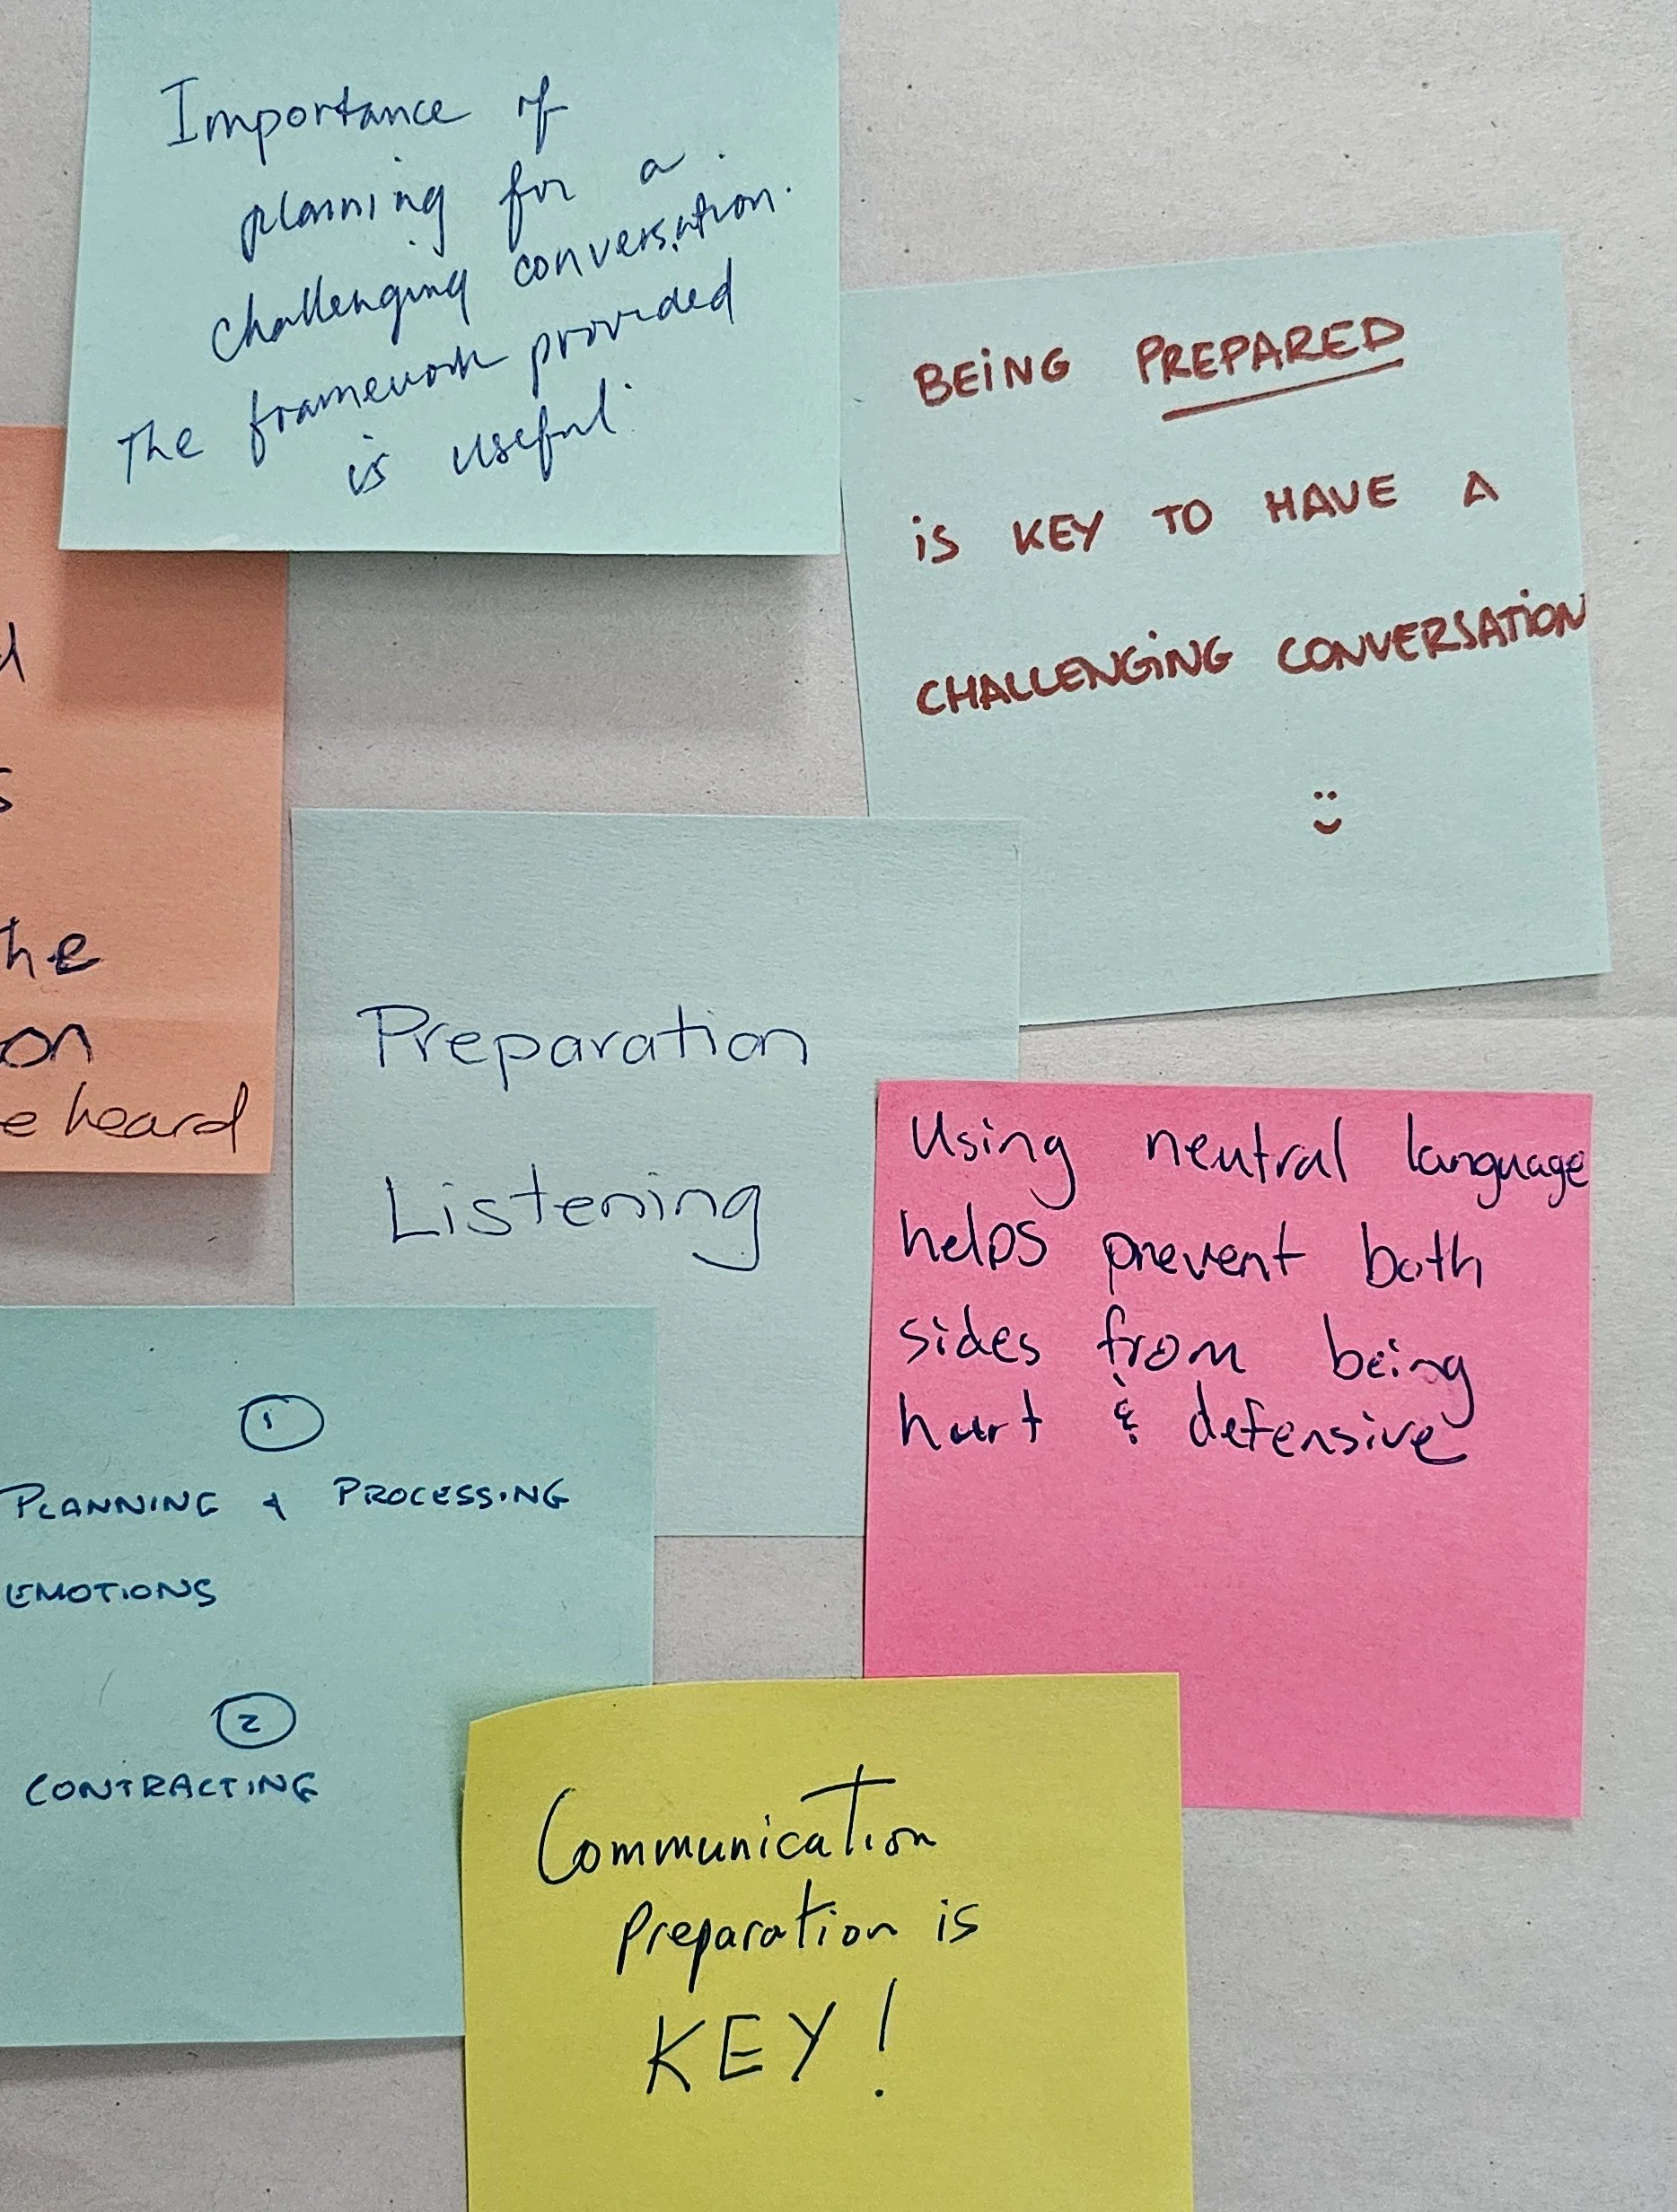 Importance of
planning for a
challenging conversation.
The framework provided
is useful.
BEING PREPARED
is KEY TO HAVE A
CHALLENGING CONVERSATION
he
on
e heard
Preparation
Listening
Using neutral language
helps prevent both
sides from being
hurt & defensive
1
PLANNING & PROCESSING
EMOTIONS
2
CONTRACTING
Communication
Preparation is
KEY!